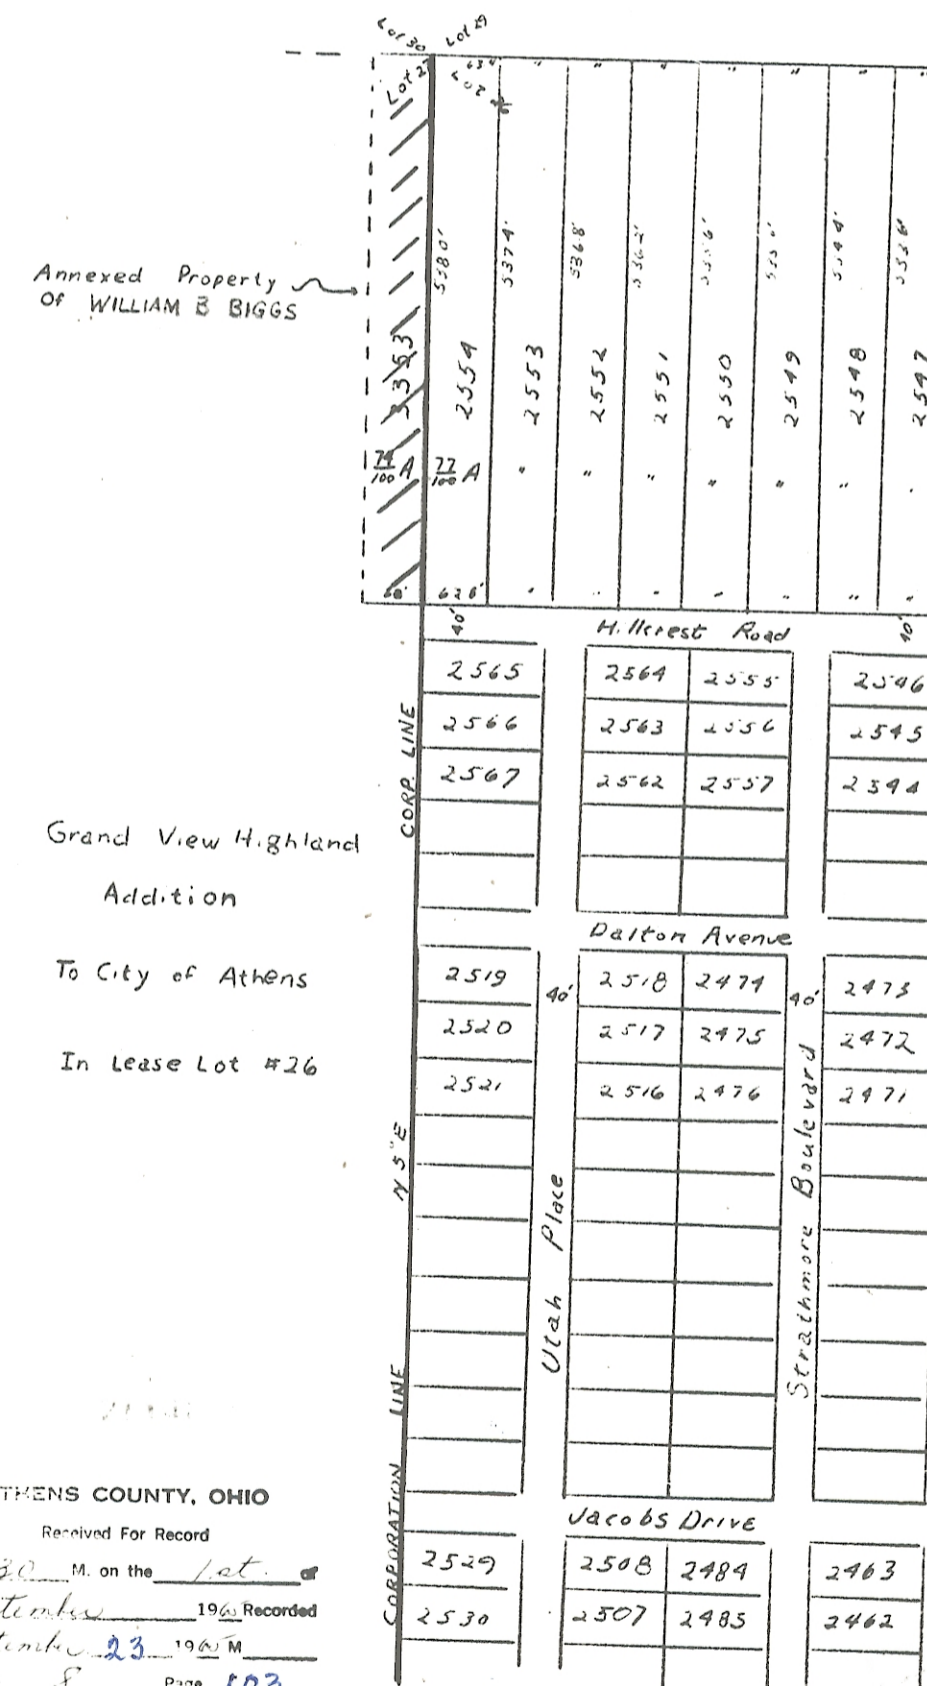 Lot 30 Lot 29
Lot 27 634 " " " " " "
Lot 26
Annexed Property
Of WILLIAM B BIGGS
5380' 5374' 5368'
3353 2554 2553 2552 2551 2550 2549 2548 2547
74/100 A 77/100 A " " " " " "
60' 626' " " " " " "
40' Hillcrest Road 40'
2565 2564 2555 2546
2566 2563 2556 2545
2567 2562 2557 2544
CORP. LINE
Grand View Highland
Addition
To City of Athens
In Lease Lot #26
Dalton Avenue
2519 40' 2518 2474 40' 2473
2520 2517 2475 2472
2521 2516 2476 2471
N 5° E
Utah Place
Strathmore Boulevard
CORPORATION LINE
Jacobs Drive
2529 2508 2484 2463
2530 2507 2485 2462
THENS COUNTY, OHIO
Received For Record
30 M. on the 1st
tember 196 Recorded
tember 23 196 M
8 Page 103